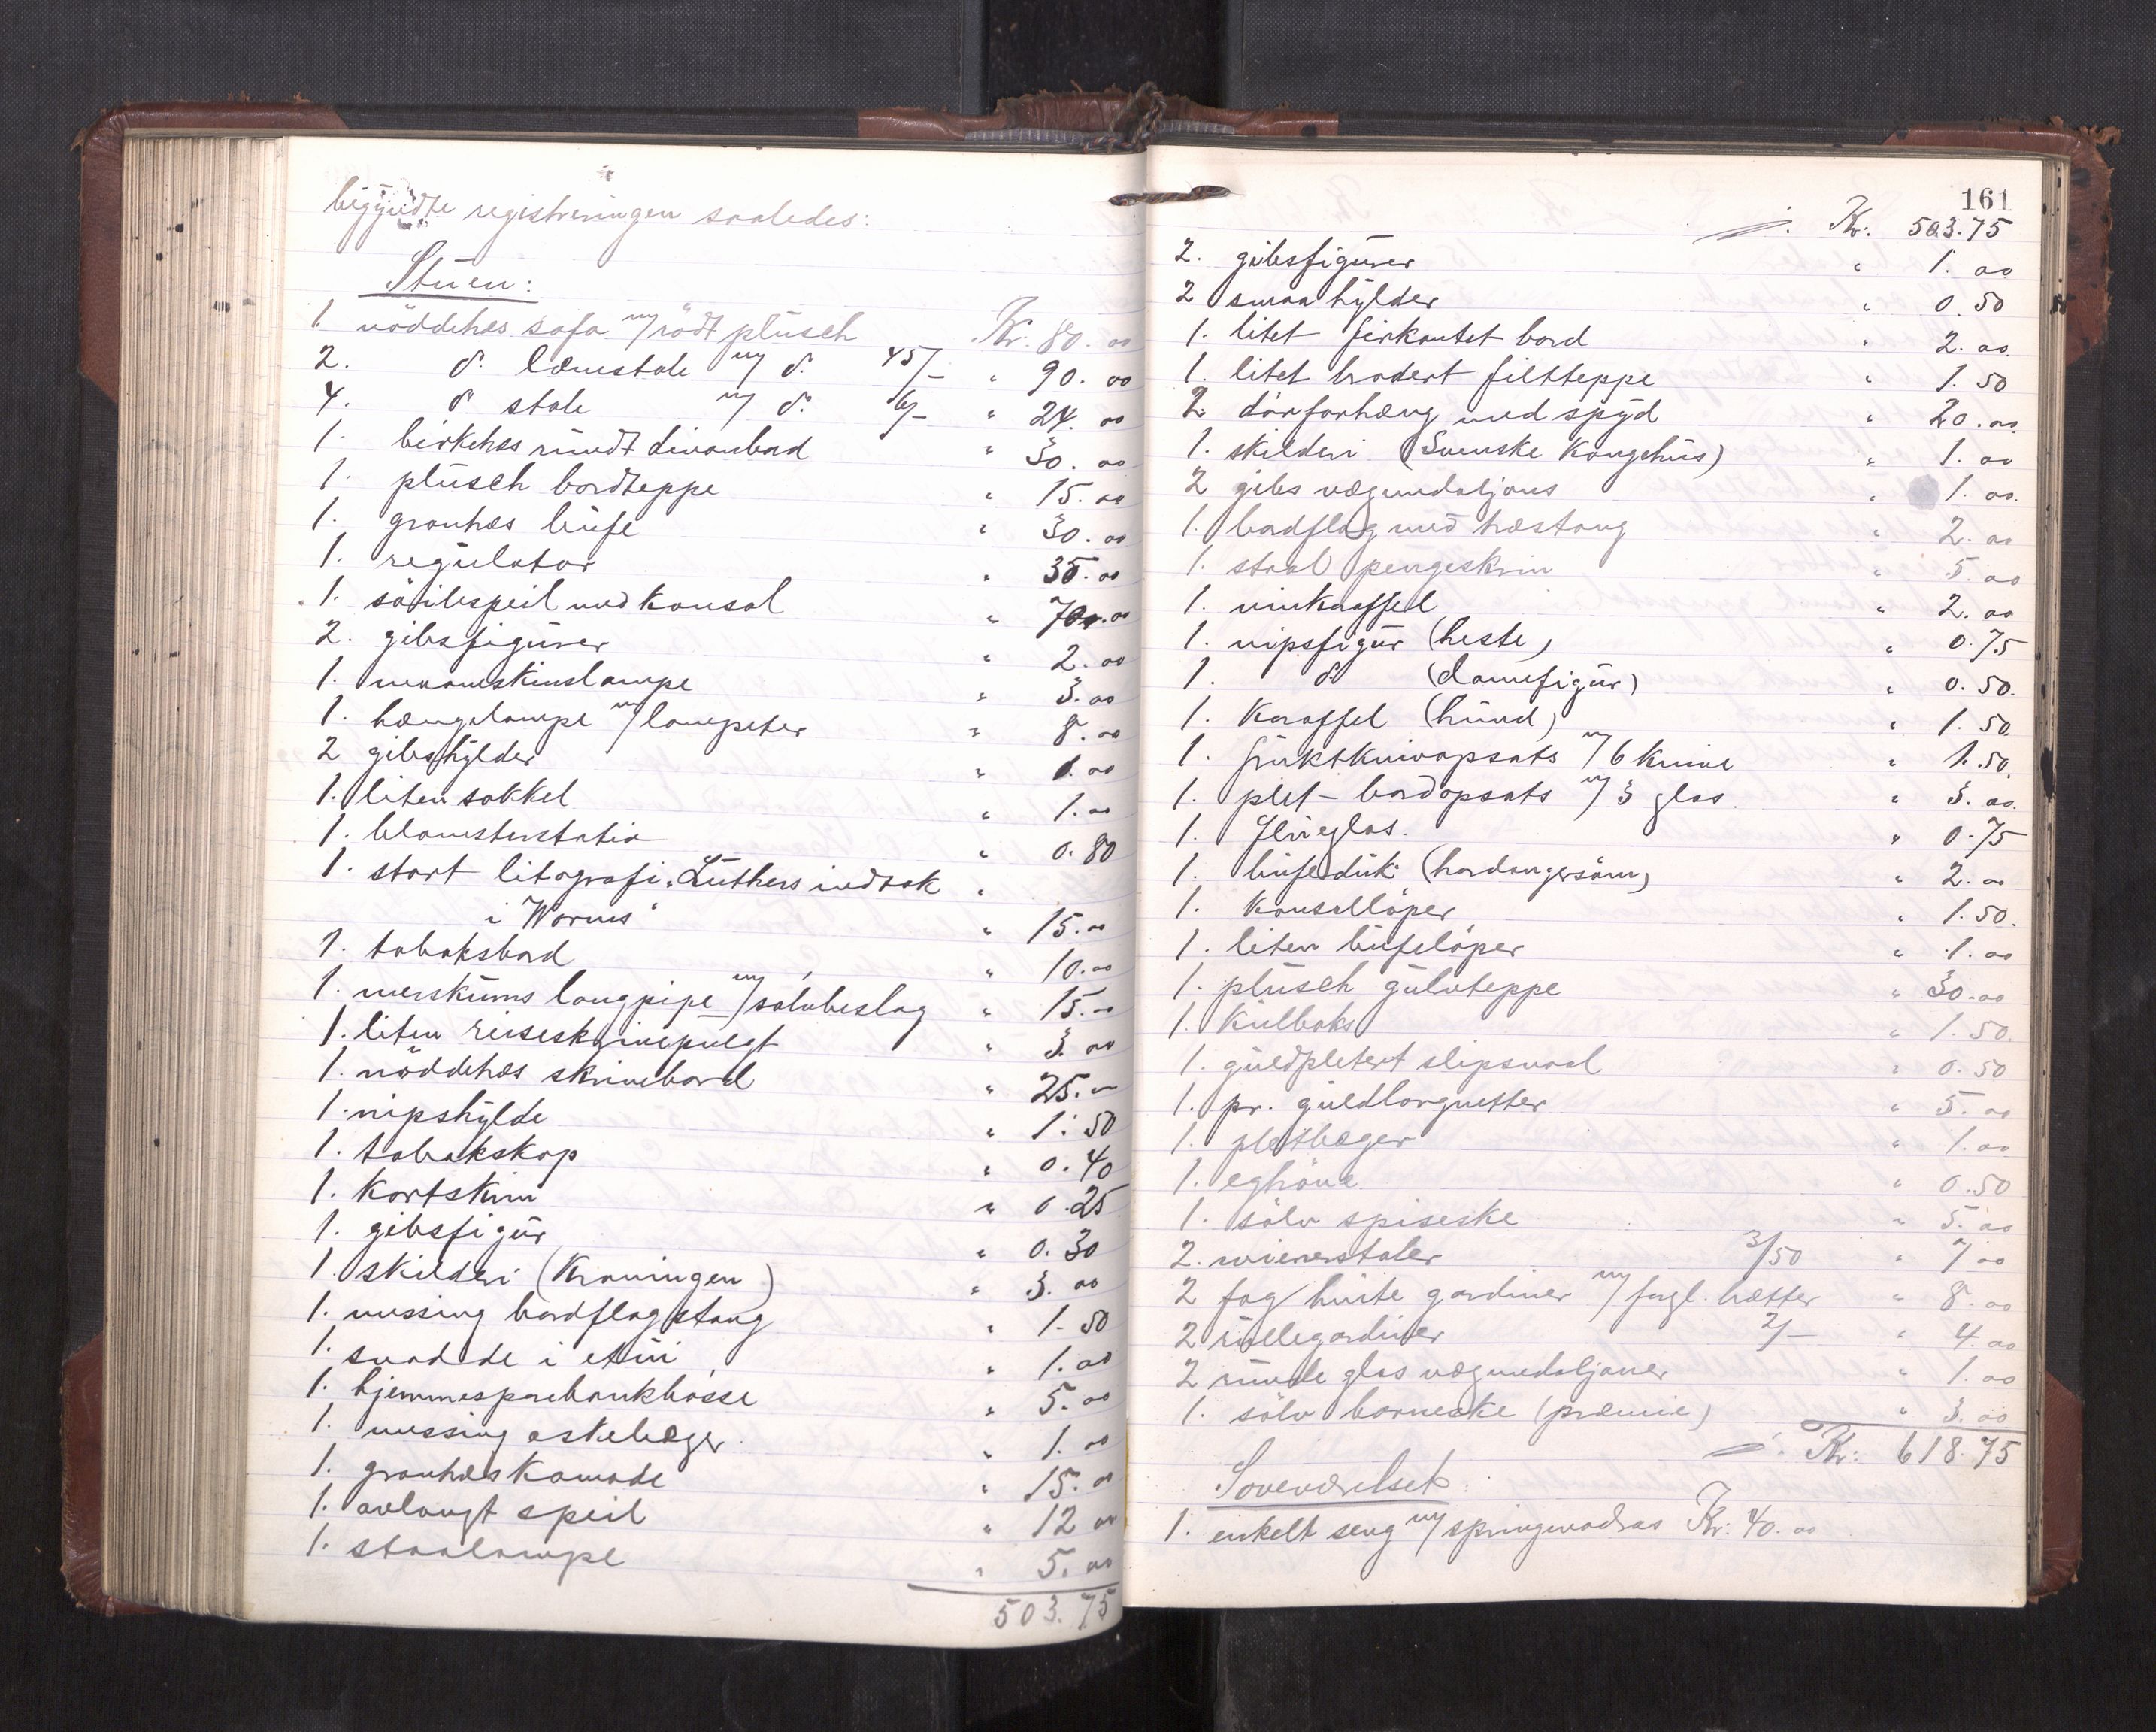 begyndte registreringen saaledes:
Stuen:
1. nöddetræs sofa m/ rödt plüsch Kr. 80.00
2. do. lænestole m/ do. 45/- " 90.00
4. do. stole m/ do. 6/- " 24.00
1. birketræs rundt divanbord " 30.00
1. plüsch bordteppe " 15.00
1. grantræs büfe " 30.00
1. regulator " 35.00
1. söilespeil med konsol " 70.00
2. gibsfigurer " 2.00
1. maaneskinslampe " 3.00
1. hængelampe m/ lampeter " 8.00
2 gibshylder " 1.00
1. liten sokkel " 1.00
1. blomsterstativ " 0.80
1. stort litografi „Luthers indtak "
i Worms" " 15.00
1. tobaksbord " 10.00
1. merskums langpipe m/ sölvbeslag " 15.00
1. liten reiseskrivepulgt " 3.00
1. nöddetræs skrivebord " 25.00
1. nipshylde " 1.50
1. tobakskop " 0.40
1. kortskrin " 0.25
1. gibsfigur " 0.30
1. skilderi (Kroningen) " 3.00
1. messing bordflagstang " 1.50
1. snadde i etui " 1.00
1. hjemmesparebankbösse " 5.00
1. messing askebæger " 1.00
1. grantræs komode " 15.00
1. avlangt speil " 12.00
1. staalampe " 5.00
503.75
161
Kr: 503.75
2. gibsfigurer " 1.00
2 smaa hylder " 0.50
1. litet firkantet bord " 2.00
1. litet brodert filtteppe " 1.50
2 dörforhæng med spyd " 20.00
1. skilderi (Svenske Kongehus) " 1.00
2 gibs vægmedaljons " 1.00
1. bordflag med træstang " 2.00
1. staal pengeskrin " 5.00
1. vinkaraffel " 2.00
1. nipsfigur (heste) " 0.75
1. do (damefigur) " 0.50
1. Karaffel (hund) " 1.50
1. fruktknivopsats m/ 6 knive " 1.50
1. plet-bordopsats m/ 3 glas. " 3.00
1. flueglas. " 0.75
1. büfedük (hardangersöm) " 2.00
1. konsollöper " 1.50
1. liten büfelöper " 1.00
1. plüsch gulvteppe " 30.00
1. kulboks " 1.50
1. guldpletert slipsnaal " 0.50
1. pr. guldlorgnetter " 5.00
1. pletbæger " 1.00
1. eghöne " 0.50
1. sölv spiseske " 5.00
2. wienerstoler 3/50 " 7.00
2 fag hvite gardiner m/ forgl. hætter " 8.00
2 rullegardiner 2/- " 4.00
2 runde glas vægmedaljoner " 1.00
1. sölv barneske (præmie) " 3.00
Kr: 618.75
Soveværelset:
1. enkelt seng m/ springmadras Kr: 40.00